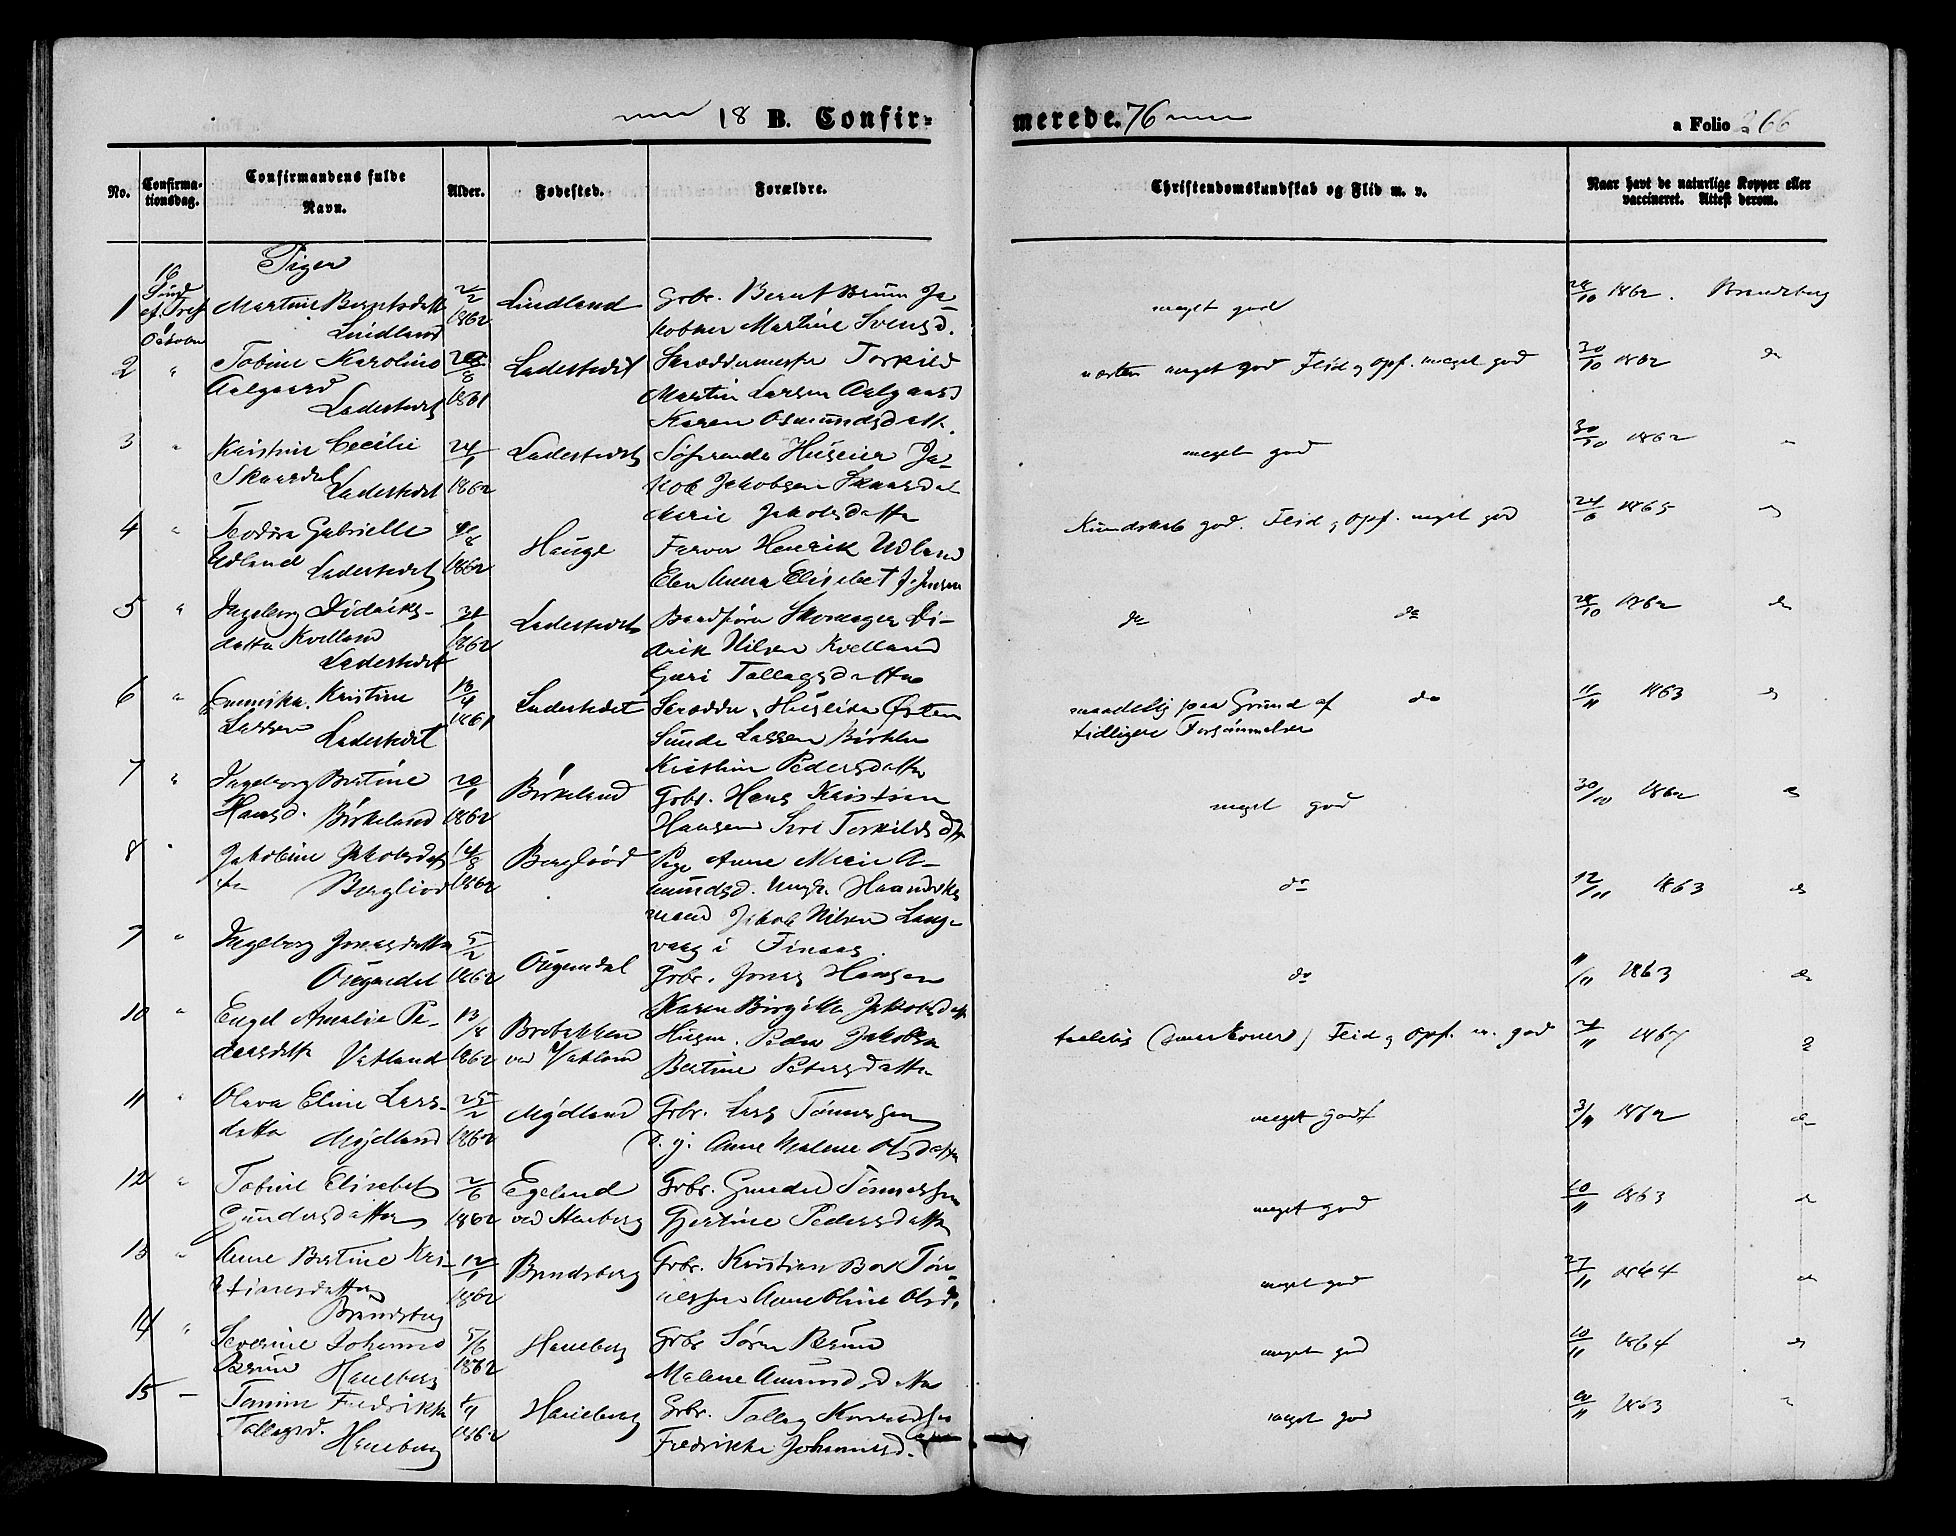 18 B. Confirmerede. 76
a Folio 266
No. Confirmationsdag. Confirmandens fulde Navn. Alder. Fødested. Forældre. Christendomskundskab og Flid m. v. Naar havt de naturlige Kopper eller vaccineret. Attest derom.
Piger
1 16 Sund ef. Tref Octobr
Martine Berntsdatt Lindland 1862 Lindland Grbr. Bernt Brun Jakobsen Martine Svensd. meget god 28/10 1862. Brandsberg
2 " Tobine Karoline Aalgaard Ladestedet 1861 Ladestedet Skræddermester Torkild Martin Larsen Aalgaard Karen Osmundsdatt. næsten meget god Flid og Opf. meget god 30/10 1862 do
3 " Kristine Cecilie Skaardal Ladestedet 24/1 1862 Ladestedet Huseier Jakob Jakobsen Skaardal Marie Jakobsdatter meget god 30/10 1862 "
4 " Teodora Gabrielle Udland Ladestedet 4/8 1862 Hauge Farver Henrik Udland Elen Anna Elisabet J. Jensen Kundskab god. Flid og Opf. meget god 24/6 1865 do
5 " Ingeborg Didriksdatter Kvelland Ladestedet 1862 Ladestedet Skomager Didrik Nilsen Kvelland Guri Tallagsdatter do do 28/10 1862 do
6 " Kristine Lassen Ladestedet 13/4 1861 Ladestedet Skrædder, Husleier Østen Sunde Lassen Kristine Pedersdatter maadelig paa Grund af tidligere Forsømmelser do 11/11 1863 do
7 " Ingeborg Bertine Hansd. Birkeland 20/1 1862 Birkeland Grbr. Hans Kristian Hansen Siri Torkildsdtr meget god 30/10 1862 do
8 " Jakobine Jakobsdatter Bergliod 14/8 1862 Bergliod Pige Anne Marie Amundsd. Ungk. Haandverksmand Jakob Nilsen Langvaag i Finaas do 12/11 1863 do
9 " Ingeborg Jonasdatter Ougendal 5/2 1862 Ougendal Grbr. Jonas Hansen Karen Birgitte Jakobsdatt do 11/11 1863 do
10 " Engel Amalie Pedersdatter Vatland 13/8 1862 Brobakken ved Vatland Husm. Peder Jakobsen Bertine Petersdatter taalelig Flid og Opf. m. god
11 " Olava Eline Larsdatter Mydland 25/2 1862 Mydland Grbr. Lars Tønnesen Anne Malene Olsdatter meget godt 3/11 do
12 " Tobine Elisabet Gundersdatter 2/6 1862 Egeland ved Haneberg Grbr. Gunder Tønnessen Gjertine Pedersdatter meget god 10/11 1863 do
13 " Anne Bertine Kristinesdatter Brandsberg 12/1 1862 Brandsberg Grbr. Kristian Boe Tønnessen Anne Oline Olsd. meget god 27/11 1864 do
14 " Severine Johanne Brun Haneberg 5/6 1862 Haneberg Grbr Søren Brun Malene Amundsdatter meget god 10/11 1864 do
15 – Tomine Fredrikke Tallagsd. Haneberg 1862 Haneberg Grbr. Tallag Konradsen Fredrikke Johannesd. meget god 1863 "